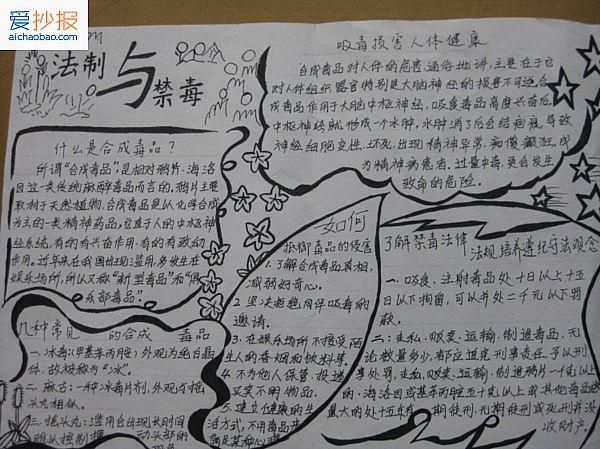 爱抄报
aichaobao.com
法制与禁毒
吸毒损害人体健康
合成毒品对人体的危害通俗地讲，主要在于它
对人体组织器官特别是大脑神经的损害不可逆，合
成毒品作用于大脑中枢神经，吸食毒品高度兴奋后，
中枢神经就形成一个水肿，水肿消了后会结疤痕，导致
神经细胞变性、坏死，出现精神异常，痴傻癫狂，成
为精神病患者，过量中毒更会发生
致命的危险。
什么是合成毒品？
所谓“合成毒品”，是相对鸦片、海洛
因这一类传统麻醉毒品而言的，鸦片主要
取材于天然植物，合成毒品是以化学合成
为主的一类精神药品，它直于人的中枢神
经系统，有的有兴奋作用，有的有致幻
作用。近年来在我国出现滥用，多发生在
娱乐场所，所以又称“新型毒品”和“俱
乐部毒品”。
几种常见的合成毒品
一、冰毒（甲基苯丙胺）外观为纯白晶
体，故被称为“冰”。
二、麻古：一种冰毒片剂，外观与摇
头丸相似。
三、摇头丸：滥用会出现长时间
难以控制摇动头部的
如何
抵御毒品的侵害
1.了解合成毒品真相，
减弱好奇心。
2.坚决拒绝同伴吸毒的
邀请。
3.在娱乐场所不接受陌
生人的香烟和饮料等。
4.不为他人保管、投递
又买不明物品。
5.建立健康的生
活方式，不用毒品去
满足某种心理
了解禁毒法律法规，培养遵纪守法观念
一、吸食、注射毒品处十日以上十五
日以下拘留，可以并处二千元以下罚
款。
二：走私、贩卖、运输、制造毒品，无
论数量多少，都应追究刑事责任，予以刑
事处罚，走私、贩卖、运输、制造鸦片一千克以上
的、海洛因或基苯丙胺五十克以上或其他毒品数
量大的处十五年有期徒刑、无期徒刑或死刑并没
收财产。